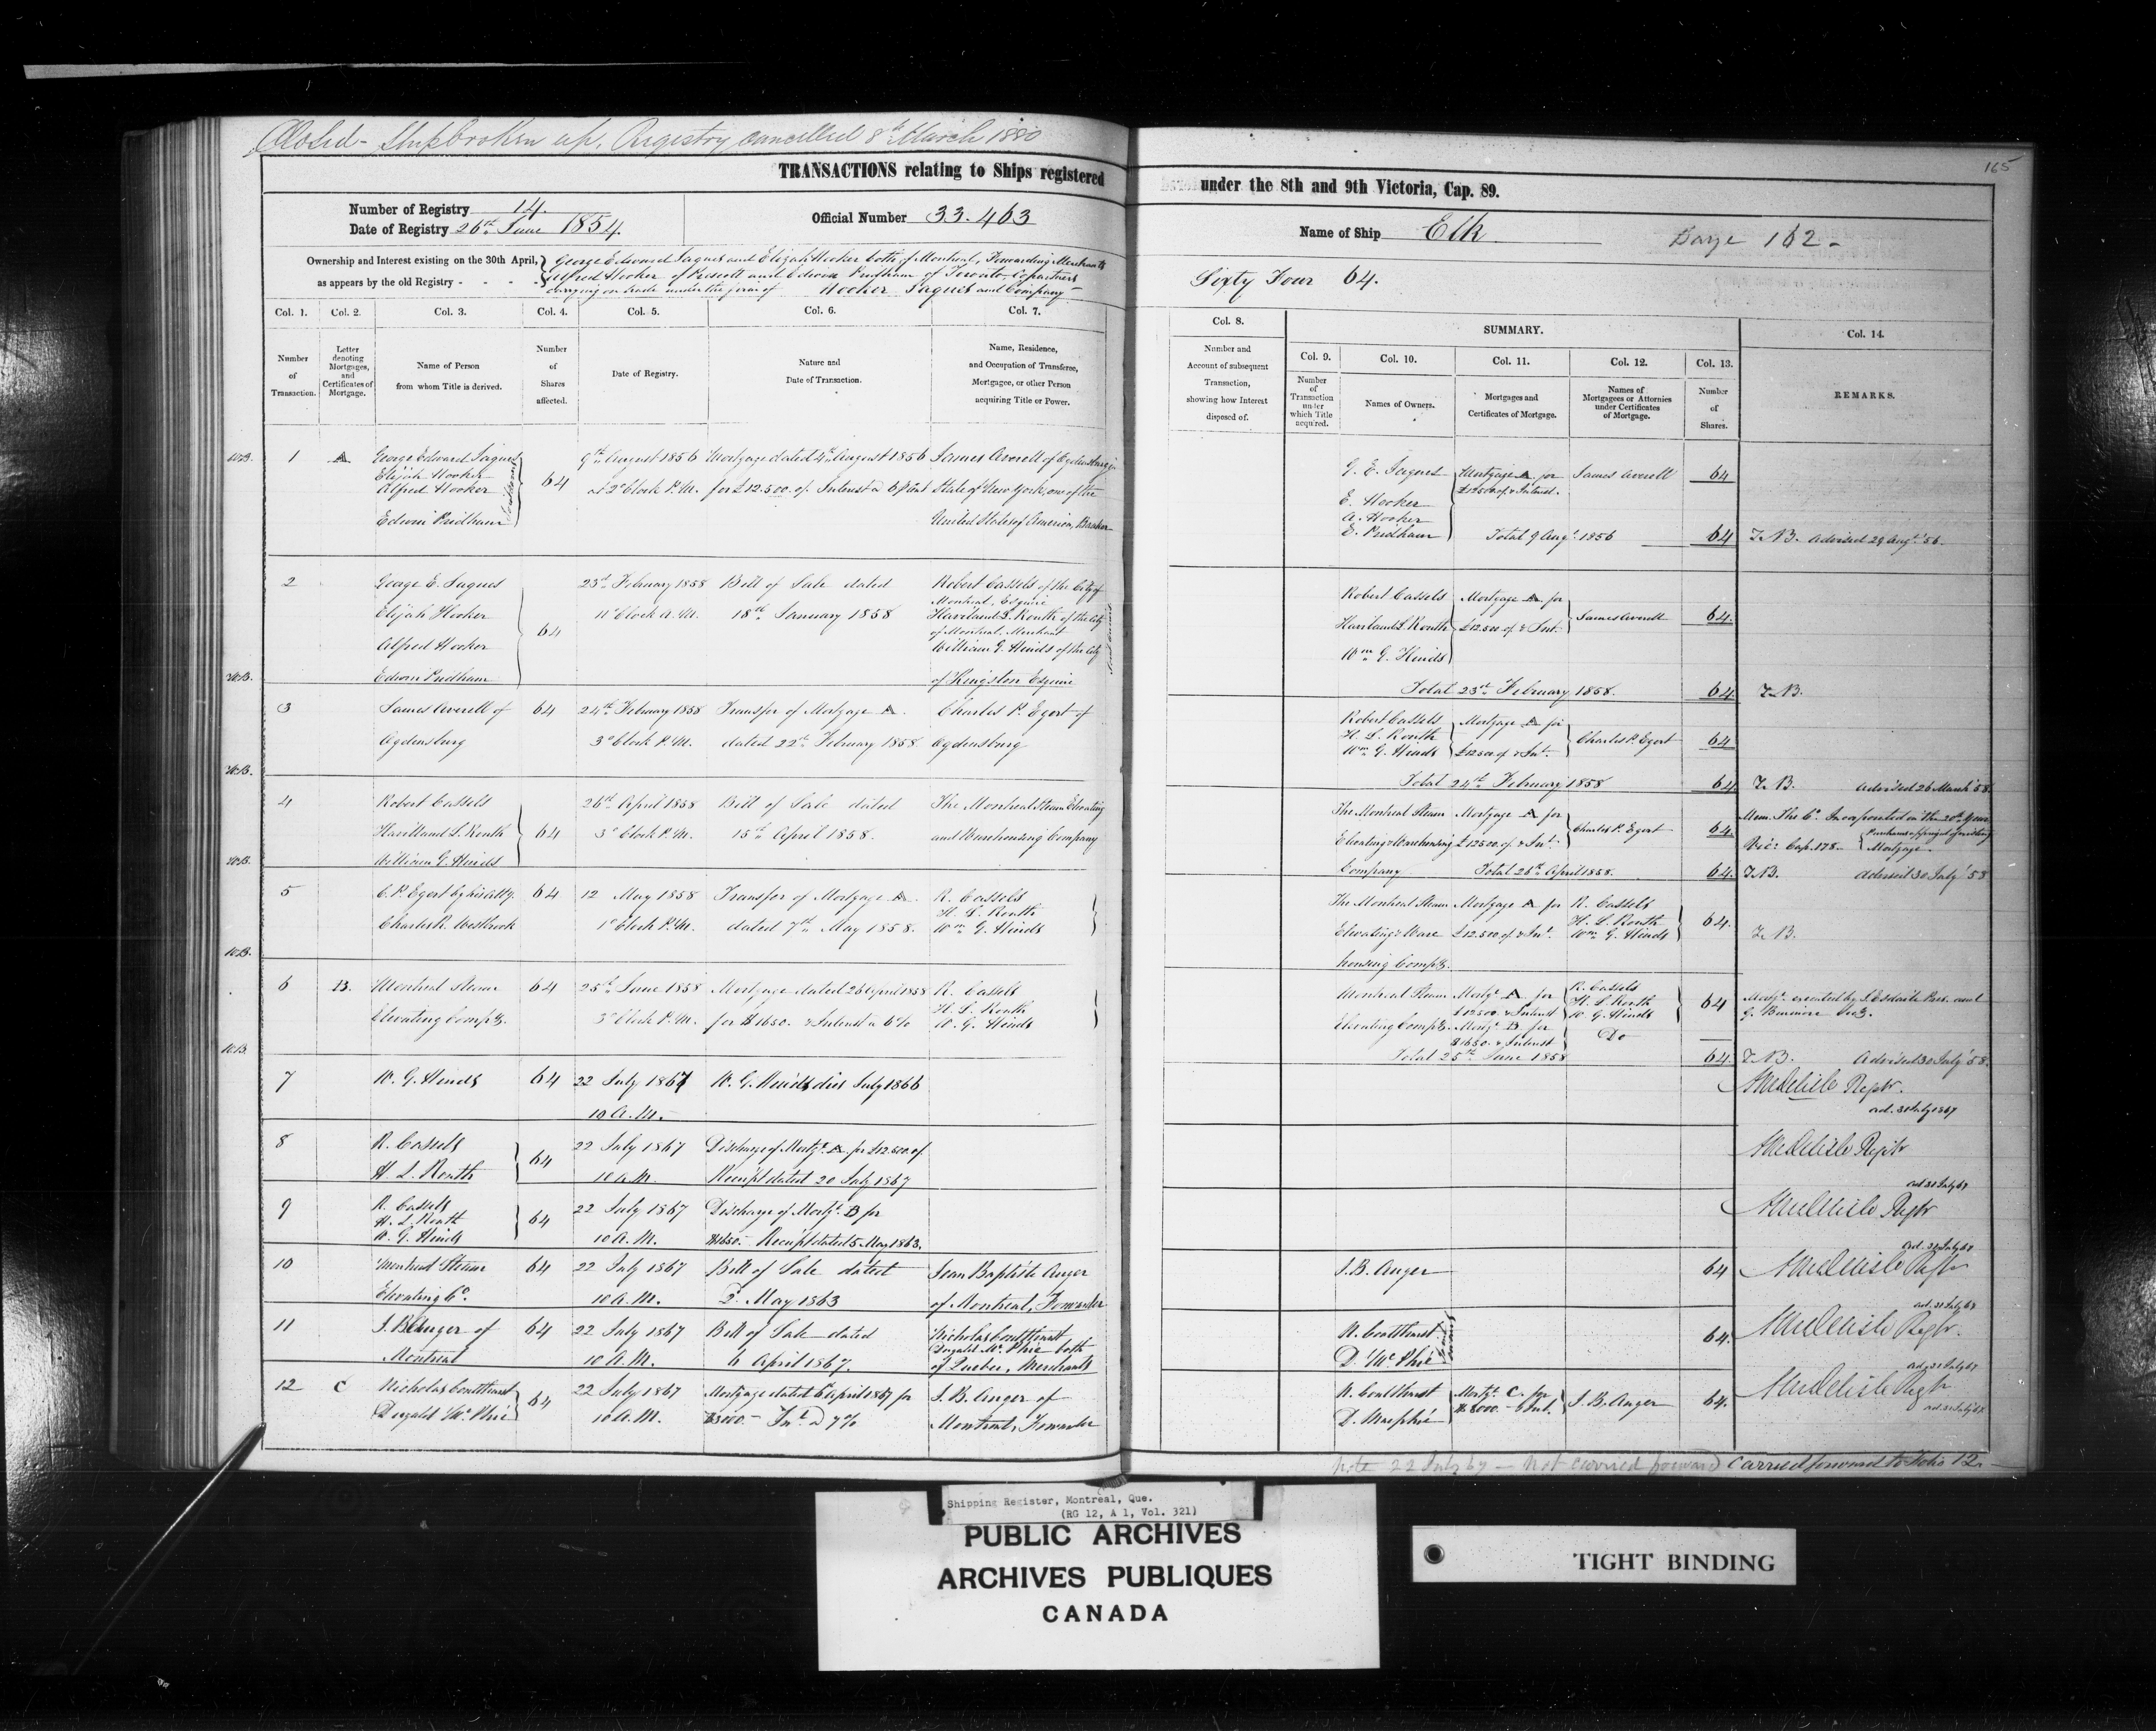 Closed - Ship broken up. Registry cancelled 8th March 1880
165
TRANSACTIONS relating to Ships registered
under the 8th and 9th Victoria, Cap. 89.
Number of Registry 14.
Date of Registry 26th June 1854.
Official Number 33.463
Name of Ship Elk
Barge 162 -
Ownership and Interest existing on the 30th April,
as appears by the old Registry - - - -
George Edward Jaques and Elijah Hooker both of Montreal, Forwarding Merchants
Alfred Hooker of Prescott and Edwin Pridham of Toronto Copartners
carrying on trade under the firm of Hooker Jaques and Company
Sixty Four 64.
Col. 1.
Number
of
Transaction.
Col. 2.
Letter
denoting
Mortgages,
and
Certificates of
Mortgage.
Col. 3.
Name of Person
from whom Title is derived.
Col. 4.
Number
of
Shares
affected.
Col. 5.
Date of Registry.
Col. 6.
Nature and
Date of Transaction.
Col. 7.
Name, Residence,
and Occupation of Transferee,
Mortgagee, or other Person
acquiring Title or Power.
Col. 8.
Number and
Account of subsequent
Transaction,
showing how Interest
disposed of.
SUMMARY.
Col. 9.
Number
of
Transaction
under
which Title
acquired.
Col. 10.
Names of Owners.
Col. 11.
Mortgages and
Certificates of Mortgage.
Col. 12.
Names of
Mortgagees or Attornies
under Certificates
of Mortgage.
Col. 13.
Number
of
Shares.
Col. 14.
REMARKS.
1 A
George Edward Jaques
Elijah Hooker
Alfred Hooker
Edwin Pridham
64
9th August 1856
at 2 o'Clock P.M.
Mortgage dated 4th August 1856
for £12.500. of Interest a 6 p Cent
James Averell of Ogdensburg
State of New York, one of the
United States of America, Banker
G. E. Jaques
E. Hooker
A. Hooker
E. Pridham
Mortgage A for
£12500. & Interest.
James Averell
64
Total 9 Augt. 1856
64
Advised 29 Augt. 56.
2
George E. Jaques
Elijah Hooker
Alfred Hooker
Edwin Pridham
64
23rd February 1858
11 o'Clock A.M.
Bill of Sale dated
18th January 1858
Robert Cassels of the City of
Montreal, Esquire
Haviland L. Routh of the City
of Montreal, Merchant
William G. Hinds of the City
of Kingston Esquire
Robert Cassels
Haviland L. Routh
Wm G. Hinds
Mortgage A for
£12.500. & Int.
James Averell
64
Total 23rd February 1858.
64
3
James Averell of
Ogdensburg
64
24th February 1858
3 o'Clock P.M.
Transfer of Mortgage A.
dated 22nd February 1858
Charles P. Egert of
Ogdensburg
Robert Cassels
H. L. Routh
Wm G. Hinds
Mortgage A for
£12500. & Int.
Charles P. Egert
64
Total 24th February 1858
64
Advised 26 March 58.
4
Robert Cassels
Havilland L. Routh
William G. Hinds
64
26th April 1858
3 o'Clock P.M.
Bill of Sale dated
15th April 1858.
The Montreal Steam Elevating
and Warehousing Company
The Montreal Steam
Elevating & Warehousing
Company
Mortgage A for
£12500. & Int.
Charles P. Egert
64
Total 26th April 1858.
64
Mem. The Co. Incorporated in the 20th Year
Vic: Cap. 178.
Mortgage.
Advised 30 July 58
5
C. P. Egert by his Atty.
Charles R. Westbrook
64
12 May 1858
1 o'Clock P.M.
Transfer of Mortgage A.
dated 7th May 1858.
R. Cassels
H. L. Routh
Wm G. Hinds
The Montreal Steam
Elevating & Ware
housing Compy.
Mortgage A for
£12.500. & Int.
R. Cassels
H. L. Routh
Wm G. Hinds
64.
6 B.
Montreal Steam
Elevating Compy.
64
25th June 1858
3 o'Clock P.M.
Mortgage dated 26 April 1858
for $1650. & Interest a 6%
R. Cassels
H. L. Routh
W. G. Hinds
Montreal Steam
Elevating Compy.
Mortge. A for
£12500. & Interest
Mortge. B for
$1650. & Interest
R. Cassels
H. L. Routh
W G. Hinds
Do
64
Total 25th June 1858
64.
Advised 30 July 58.
7
W. G. Hinds
64
22 July 1867
10 A.M.
W. G. Hinds died July 1866
Regstr.
ad. 31 July 1867
8
R. Cassels
H. L. Routh
64
22 July 1867
10 A.M.
Discharge of Mortge. A for £12.500.
Receipt dated 20 July 1867
ad. 31 July 67
9
R. Cassels
H. L. Routh
W. G. Hinds
64
22 July 1867
10 A.M.
Discharge of Mortge. B for
$1650.- Receipt dated 5 May 1863.
ad. 31 July 67
10
Montreal Steam
Elevating Co.
64
22 July 1867
10 A.M.
Bill of Sale dated
2. May 1863
Jean Baptiste Auger
of Montreal, Forwarder
J. B. Auger
64
ad. 31 July 67
11
J. B. Auger of
Montreal
64
22 July 1867
10 A.M.
Bill of Sale dated
6 April 1867.
Nicholas Coulthurst
Dugald McPhie both
of Quebec, Merchants
N. Coulthurst
D. McPhie
64.
ad. 31 July 67
12 C
Nicholas Coulthurst
Dugald McPhie
64
22 July 1867
10 A.M.
Mortgage dated 6 April 1867 for
$3000.- Int. @ 7%
J. B. Auger of
Montreal, Forwarder
N. Coulthurst
D. Macphie
Mortge. C. for
$3000.- & Int.
J. B. Auger
64.
Note 22 July 67 - Not carried forward
Carried forward to Folio 12.
Shipping Register, Montreal, Que.
(RG 12, A 1, Vol. 321)
PUBLIC ARCHIVES
ARCHIVES PUBLIQUES
CANADA
TIGHT BINDING